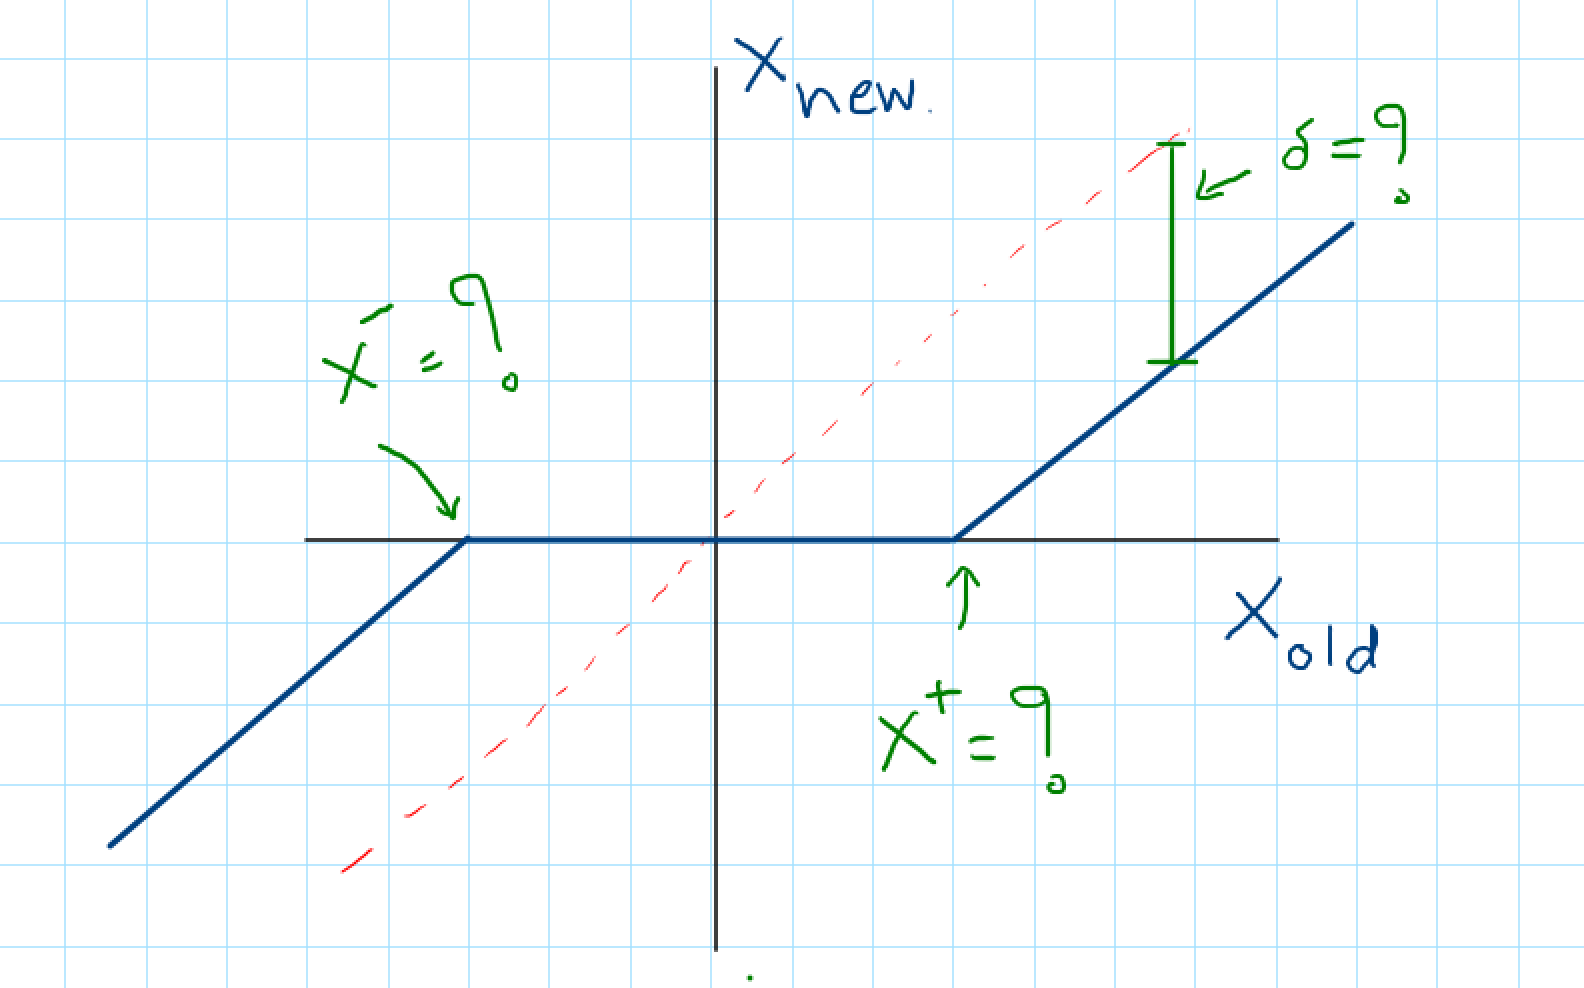 X_new
δ = ?
x⁻ = ?
X_old
x⁺ = ?